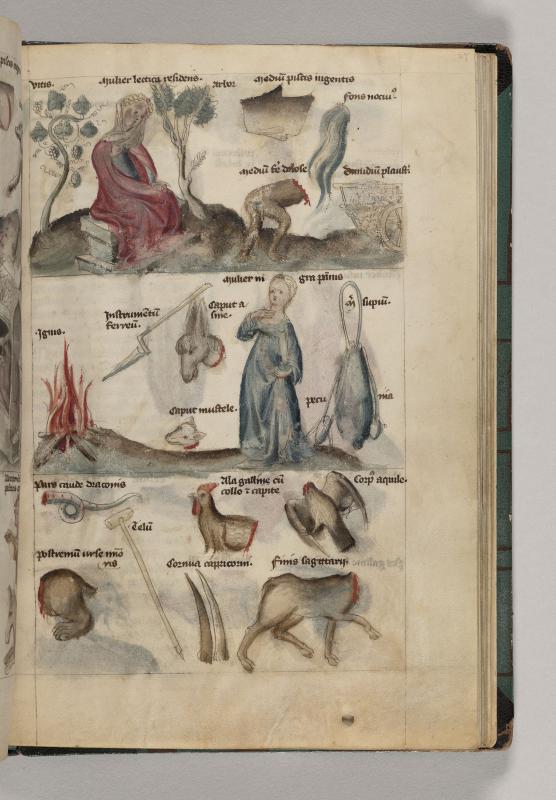 vitis.
Mulier lectica residens.
Arbor
Mediũ piscis ingentis
fons nociu⁹.
Mediũ
Dimidiũ plaust
Mulier ni gra pãnis
Instrumẽtũ
ferreũ.
Caput a
sine.
supiũ.
Ignis.
Caput mustele.
pecu nia
Pars caude draconis
Ala galline cũ
collo ⁊ capite
Corp⁹ aquile.
Telũ
postremũ vrse mĩo
ris
Cornua capricorni.
finis sagittarij.